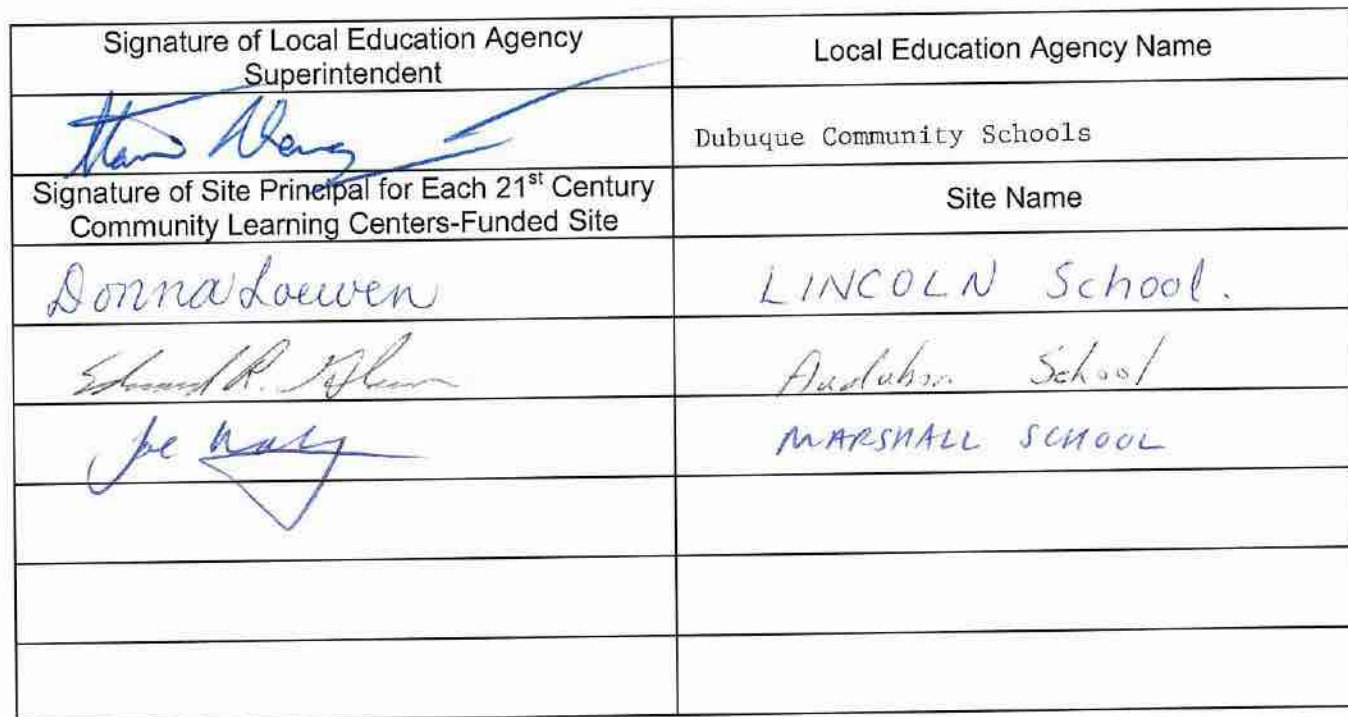 Signature of Local Education Agency
Superintendent
Local Education Agency Name
Dubuque Community Schools
Signature of Site Principal for Each 21st Century
Community Learning Centers-Funded Site
Site Name
Donna Loewen
LINCOLN School.
Edward R.
Audubon School
Joe
MARSHALL SCHOOL